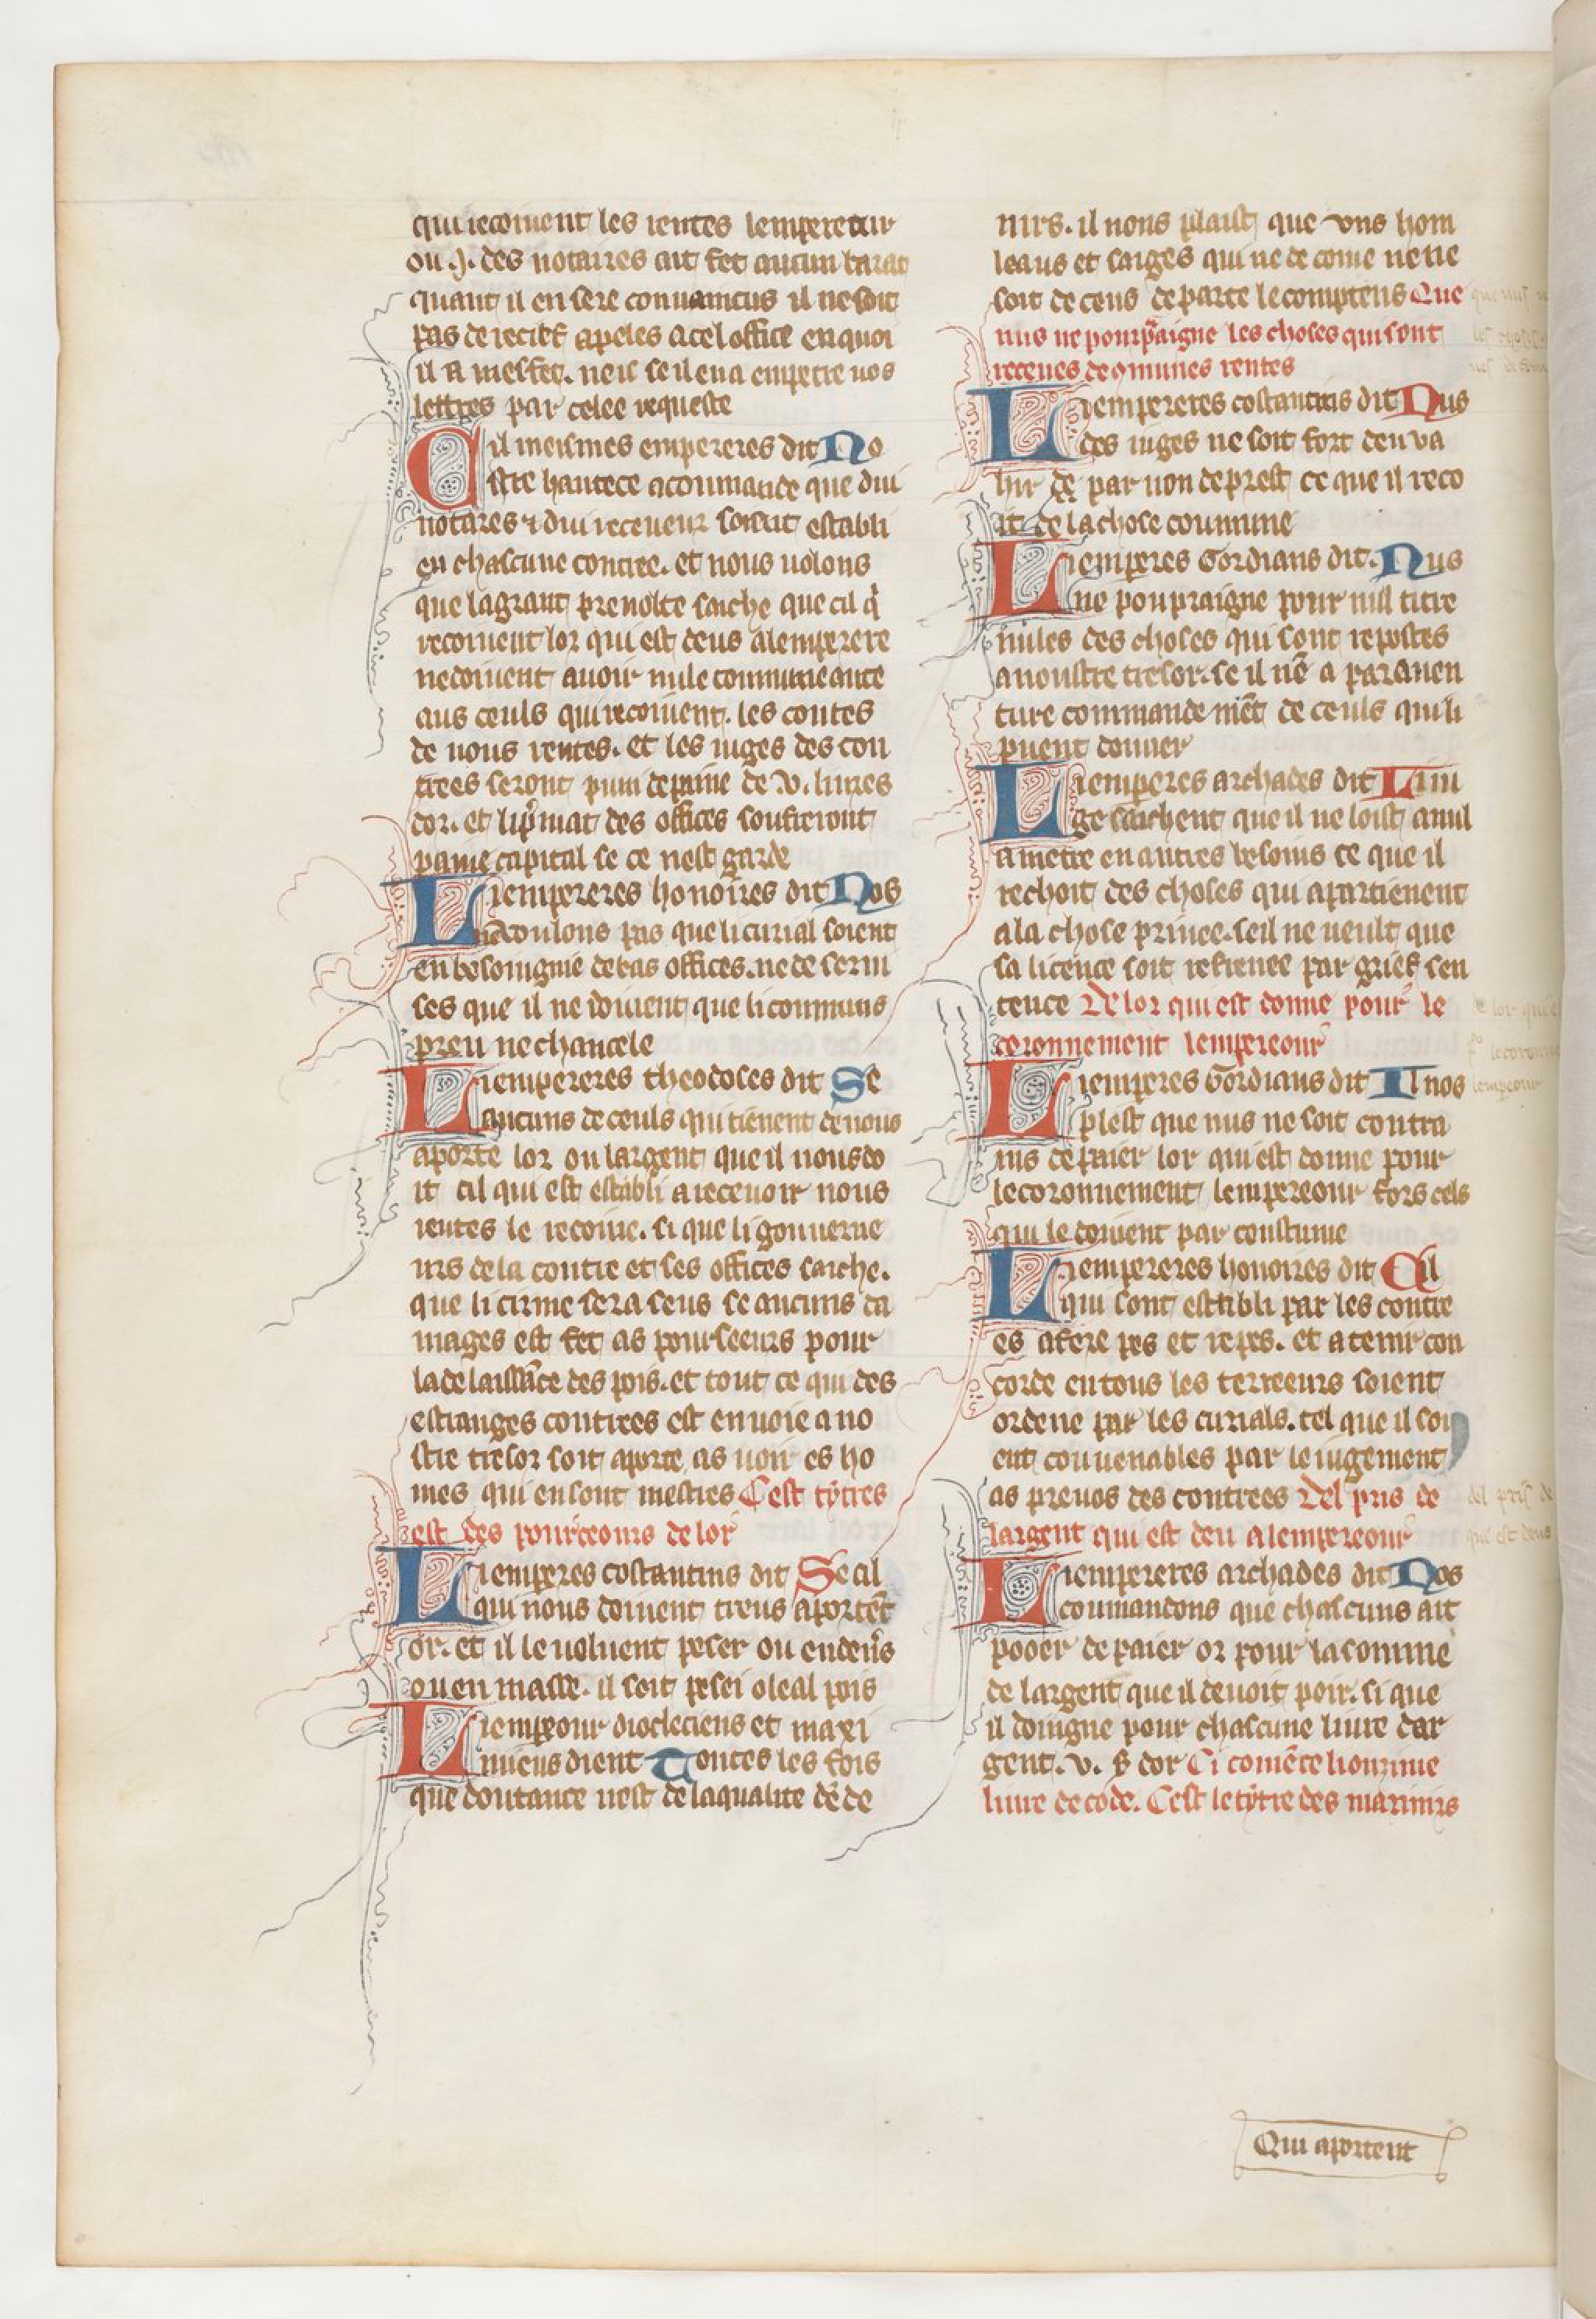 qui recoiuent les rentes lempereeur
ou .j. des notaires ait fet aucun barat
quant il en sere conuaincus il ne soit
pas de rechief apeles a cel office en quoi
il a mesfet. neis se il en a empetre nos
lettres par celee requeste
Cil meismes empereres dit No
stre hautece acoumande que dui
notares ⁊ dui receueur soient establi
en chascune contree. et nous uolons
que la grant preuoste sache que cil q̇
recoiuent lor qui est deus alemperere
ne doiuent auoir nule commune ance
aus ceuls qui recoiuent. les contes
de nous rentes. et les iuges des con
trees seront puni de paine de .v. liures
dor. et li p̓mat des offices soufreront
paine capital se ce nest garde
Li empereres honoires dit Nos
ne uoulons pas que li curial soient
en besoingnie de bas offices. ne de serui
ses que il ne doiuent que li communs
preu ne chancele
Li empereres theodoses dit Se
aucuns de ceuls qui tienent de nous
aporte lor ou largent que il nous do
it cil qui est establi a receuoir nous
rentes le recoiue. si que li gouuerne
urs de la contre et ses offices sache.
que li crime sera seus se aucuns da
mages est fet as pourseeurs pour
la delaissāce des pois. et tout ce qui des
estranges contrees est enuoie a no
stre tresor soit aporte as noir es ho
mes qui en sont mestres Cest tytres
est des pourseours de lor
Li emperes costantins dit Se cil
qui nous doiuent treus aportēt
or. et il le uoluent peser ou en den̓s
ou en masse. il soit pesei o leal pois
Li empeour diocleciens et maxi
miiens dient Toutes les fois
que doutance uest de la qualite de de
nirs. il nons plaist que vns hom
leaus et saiges qui ne decoiue ne ne
soit de ceus departe le comptens Que
nus ne pourp̄aigne les choses qui sont
receues de ɔmunes rentes
Li empereres costantins dit Nus
des iuges ne soit fort den va
hir de par non de prest ce que il reco
it de la chose coumune
Li emperes Gordians dit. Nus
ne pou praigne pour nul titre
nules des choses qui sont repostes
a noustre tresor. se il nē a par auen
ture commande mēt de ceuls qui li
puent donner
Li emperes archades dit Li iu
ge saichent que il ne loist a nul
a metre en autres besoins ce que il
rechoit des choses qui apartienent
a la chose priuee. seil ne ueult que
sa licence soit refrenee par grief sen
tence De lor qui est donne pour le
coronnement lempereour
Li emperes Gordians dit Il nos
plest que nus ne soit contra
ins de paier lor qui est donne pour
le coronnement lempereour fors cels
qui le doiuent par coustume
Li empereres honoires dit Cil
qui sont establi par les contre
es a fere pes et repes. et a tenir con
corde en tous les terreeurs soient
ordene par les curials. tel que il soi
ent conuenables par le iugement
as preuos des contrees Del pris de
largent qui est deu a lempereour
Li empereres archades dit Nos
coumandons que chascuns ait
pooer de paier or pour la somme
de largent que il deuoit poir. si que
il doingne pour chascune liure dar
gent. v. ẞ dor Ci comēce li onzime
liure de code. Cest le tytre des mariniers
Qui aportent